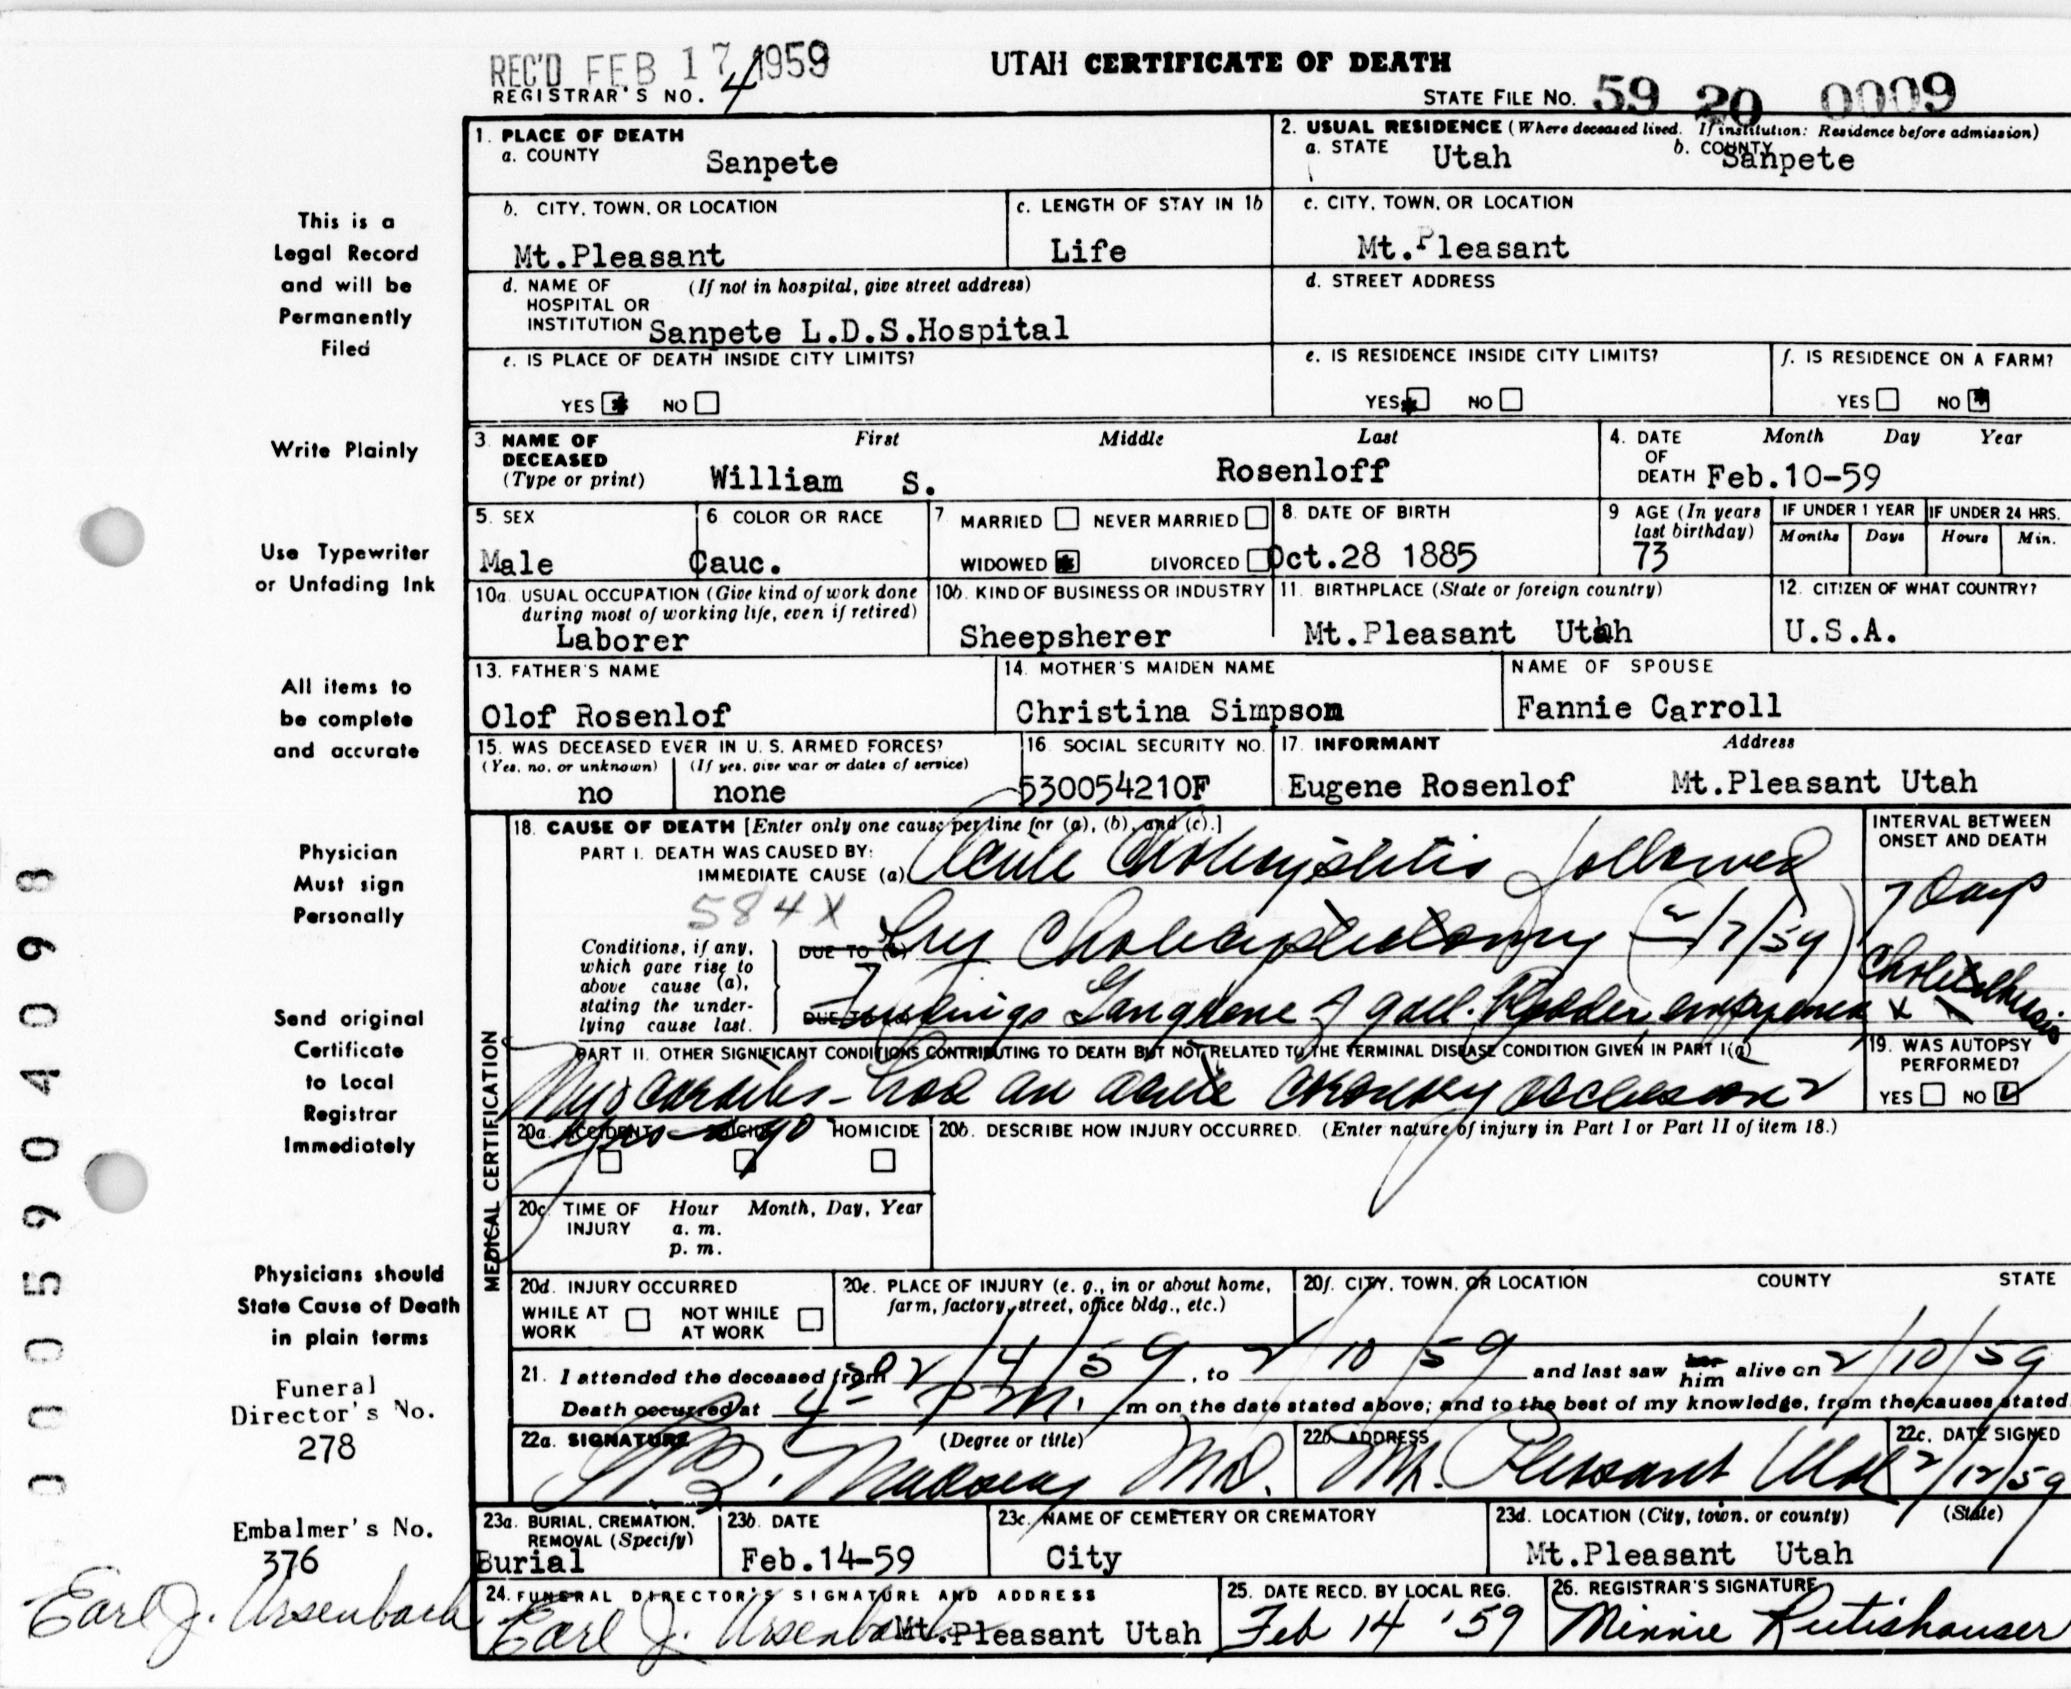 REC'D FEB 17 1959
REGISTRAR'S NO. 4
UTAH CERTIFICATE OF DEATH
STATE FILE NO. 59 20 0009
1. PLACE OF DEATH
a. COUNTY Sanpete
2. USUAL RESIDENCE (Where deceased lived. If institution: Residence before admission)
a. STATE Utah b. COUNTY Sanpete
b. CITY, TOWN, OR LOCATION Mt.Pleasant
c. LENGTH OF STAY IN 1b Life
c. CITY, TOWN, OR LOCATION Mt.Pleasant
d. NAME OF HOSPITAL OR INSTITUTION (If not in hospital, give street address)
Sanpete L.D.S.Hospital
d. STREET ADDRESS
e. IS PLACE OF DEATH INSIDE CITY LIMITS?
YES NO
e. IS RESIDENCE INSIDE CITY LIMITS?
YES NO
f. IS RESIDENCE ON A FARM?
YES NO
3. NAME OF DECEASED (Type or print)
First Middle Last
William S. Rosenloff
4. DATE OF DEATH Month Day Year
Feb.10-59
5. SEX Male
6. COLOR OR RACE Cauc.
7. MARRIED NEVER MARRIED
WIDOWED DIVORCED
8. DATE OF BIRTH Oct.28 1885
9 AGE (In years last birthday) 73
IF UNDER 1 YEAR Months Days
IF UNDER 24 HRS. Hours Min.
10a. USUAL OCCUPATION (Give kind of work done during most of working life, even if retired)
Laborer
10b. KIND OF BUSINESS OR INDUSTRY
Sheepsherer
11. BIRTHPLACE (State or foreign country)
Mt.Pleasant Utah
12. CITIZEN OF WHAT COUNTRY?
U.S.A.
13. FATHER'S NAME
Olof Rosenlof
14. MOTHER'S MAIDEN NAME
Christina Simpson
NAME OF SPOUSE
Fannie Carroll
15. WAS DECEASED EVER IN U. S. ARMED FORCES?
(Yes, no, or unknown) (If yes, give war or dates of service)
no none
16. SOCIAL SECURITY NO.
530054210F
17. INFORMANT Address
Eugene Rosenlof Mt.Pleasant Utah
MEDICAL CERTIFICATION
18. CAUSE OF DEATH [Enter only one cause per line for (a), (b), and (c).]
PART I. DEATH WAS CAUSED BY:
IMMEDIATE CAUSE (a) Acute Cholecystitis followed
584X
Conditions, if any, which gave rise to above cause (a), stating the underlying cause last.
DUE TO (b) by Cholecystectomy (2/7/59)
DUE TO (c) Findings Gangrene of gall. Bladder empyema
INTERVAL BETWEEN ONSET AND DEATH
7 Days
PART II. OTHER SIGNIFICANT CONDITIONS CONTRIBUTING TO DEATH BUT NOT RELATED TO THE TERMINAL DISEASE CONDITION GIVEN IN PART I(a)
Myocarditis - had an acute coronary occlusion 2
yrs ago
19. WAS AUTOPSY PERFORMED?
YES NO
20a. ACCIDENT SUICIDE HOMICIDE
20b. DESCRIBE HOW INJURY OCCURRED. (Enter nature of injury in Part I or Part II of item 18.)
20c. TIME OF INJURY Hour Month, Day, Year
a. m.
p. m.
20d. INJURY OCCURRED
WHILE AT WORK NOT WHILE AT WORK
20e. PLACE OF INJURY (e. g., in or about home, farm, factory, street, office bldg., etc.)
20f. CITY, TOWN, OR LOCATION COUNTY STATE
21. I attended the deceased from 2/4/59, to 2/10/59 and last saw her him alive on 2/10/59
Death occurred at 4 P.M. m on the date stated above; and to the best of my knowledge, from the causes stated.
22a. SIGNATURE (Degree or title)
Madsen MD.
22b. ADDRESS
Mt. Pleasant Utah
22c. DATE SIGNED
2/12/59
23a. BURIAL, CREMATION, REMOVAL (Specify)
Burial
23b. DATE
Feb.14-59
23c. NAME OF CEMETERY OR CREMATORY
City
23d. LOCATION (City, town, or county) (State)
Mt.Pleasant Utah
24. FUNERAL DIRECTOR'S SIGNATURE AND ADDRESS
Earl J. Ursenbach Mt.Pleasant Utah
25. DATE RECD. BY LOCAL REG.
Feb 14 '59
26. REGISTRAR'S SIGNATURE
Minnie Rutishauser
This is a
Legal Record
and will be
Permanently
Filed
Write Plainly
Use Typewriter
or Unfading Ink
All items to
be complete
and accurate
Physician
Must sign
Personally
Send original
Certificate
to Local
Registrar
Immediately
Physicians should
State Cause of Death
in plain terms
Funeral
Director's No.
278
Embalmer's No.
376
Earl J. Ursenbach
0005904098